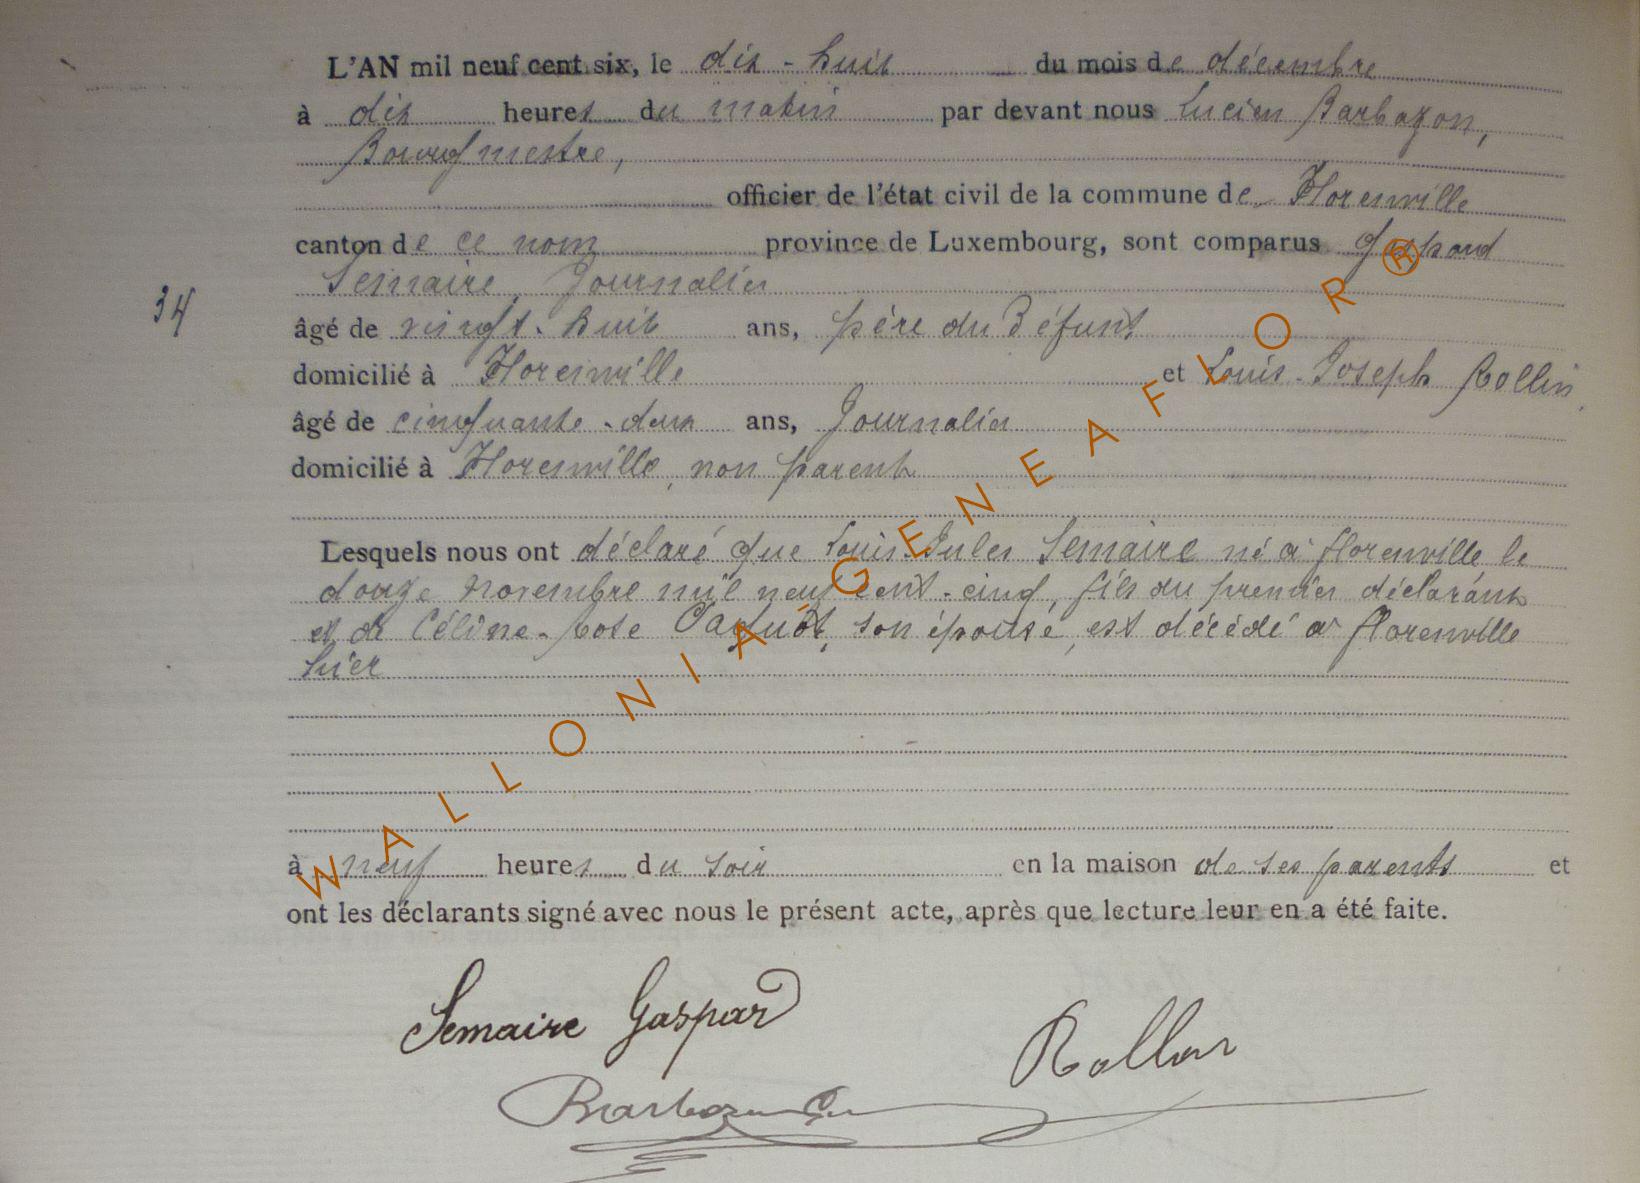 L'AN mil neuf cent six, le dix-huit du mois de décembre
à dix heures du matin par devant nous Lucien Barbazon,
Bourgmestre,
officier de l'état civil de la commune de Florenville
canton de ce nom province de Luxembourg, sont comparus Gaspard
Semaire, Journalier
34
âgé de vingt-huit ans, père du défunt
domicilié à Florenville et Louis-Joseph Rollin,
âgé de cinquante-deux ans, Journalier
domicilié à Florenville, non parent
Lesquels nous ont déclaré que Louis-Jules Semaire né à florenville le
douze novembre mil neuf cent-cinq, fils du premier déclarant
et de Céline-Rose Paquot, son épouse, est décédé à florenville
hier
à neuf heures du soir en la maison de ses parents et
ont les déclarants signé avec nous le présent acte, après que lecture leur en a été faite.
Semaire Gaspard
Rollin
Barbazon
WALLONIA-GENEAFLOR®